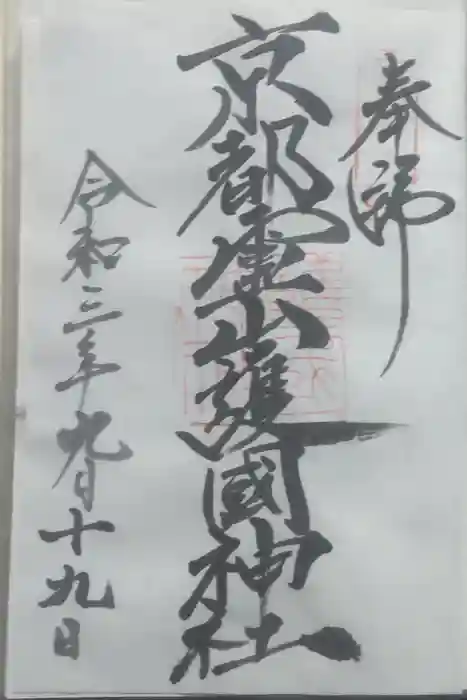 奉拝
京都霊山護國神社
令和三年九月十九日